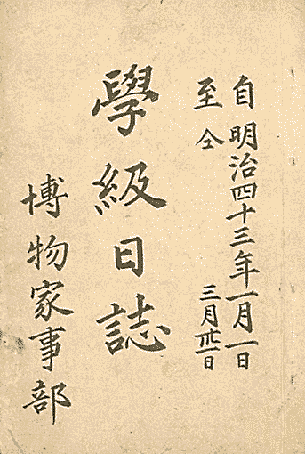 自明治四十三年一月一日
至仝　三月卅一日
學級日誌
博物家事部